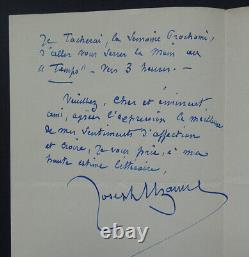 Je Tacherai, la Semaine Prochaine,
d'aller vous Serrer la Main au
"Temps" - vers 3 heures. -
Veuillez, Cher et éminent
ami, agréer l'expression la meilleure
de mes Sentiments d'affection
et croire, je vous prie, à ma
haute estime littéraire,
Joseph
ebay